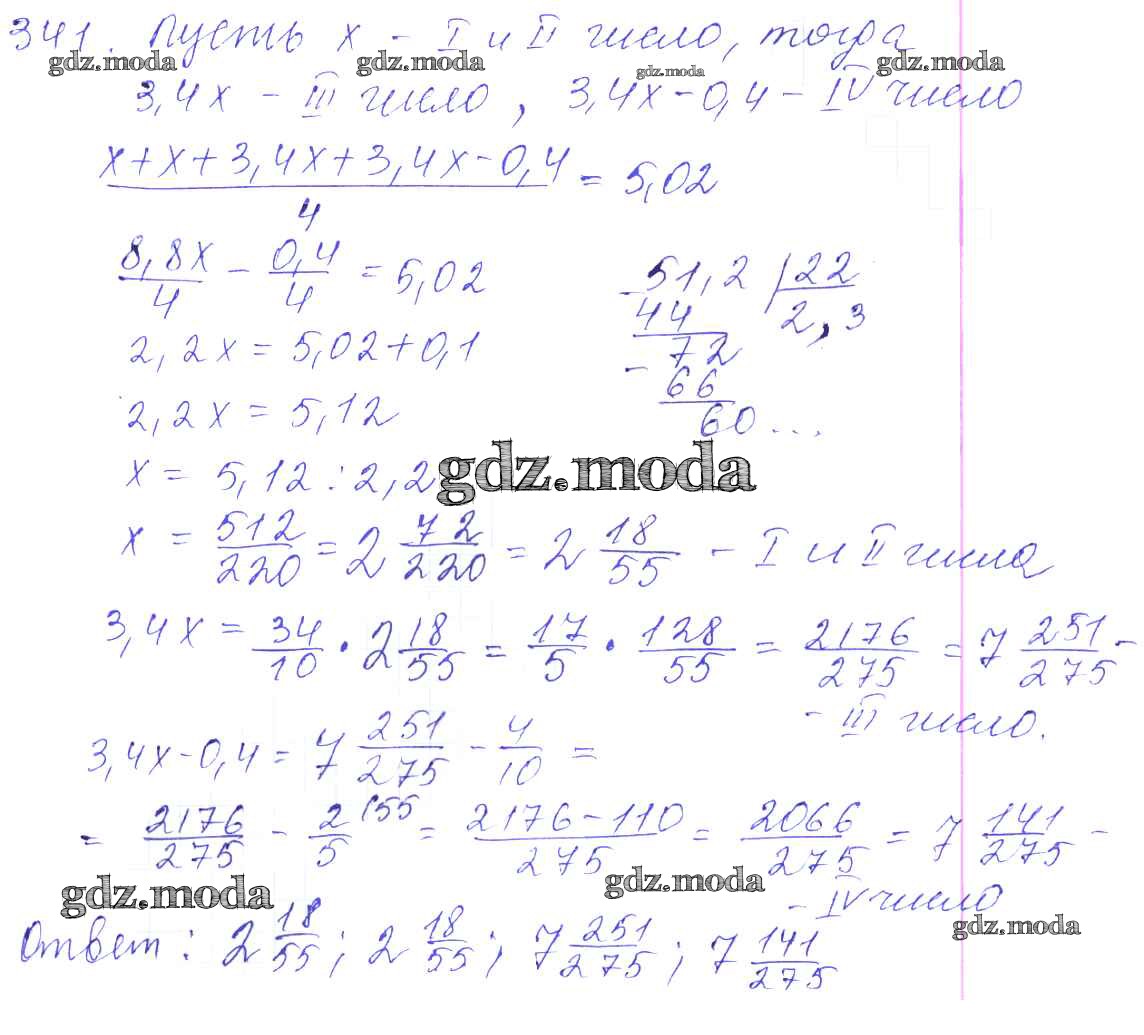 341. Пусть x - I и II число, тогда
gdz.moda gdz.moda gdz.moda gdz.moda
3,4x - III число, 3,4x-0,4 - IV число
x+x+3,4x+3,4x-0,4/4 = 5,02
8,8x/4 - 0,4/4 = 5,02
2,2x = 5,02+0,1
2,2x = 5,12
51,2 | 22
44 2,3
- 72
66
60...
x = 5,12 : 2,2
gdz.moda
x = 512/220 = 2 72/220 = 2 18/55 - I и II числа
3,4x = 34/10 · 2 18/55 = 17/5 · 128/55 = 2176/275 = 7 251/275 -
- III число.
3,4x-0,4 = 7 251/275 - 4/10 =
= 2176/275 - 2/5 (55 = 2176-110/275 = 2066/275 = 7 141/275 -
gdz.moda gdz.moda
- IV число
gdz.moda
Ответ: 2 18/55; 2 18/55; 7 251/275; 7 141/275